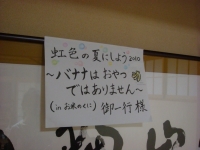 虹色の夏にしよう2010
～バナナはおやつ
ではありません～
(in お米のくに) 御一行様